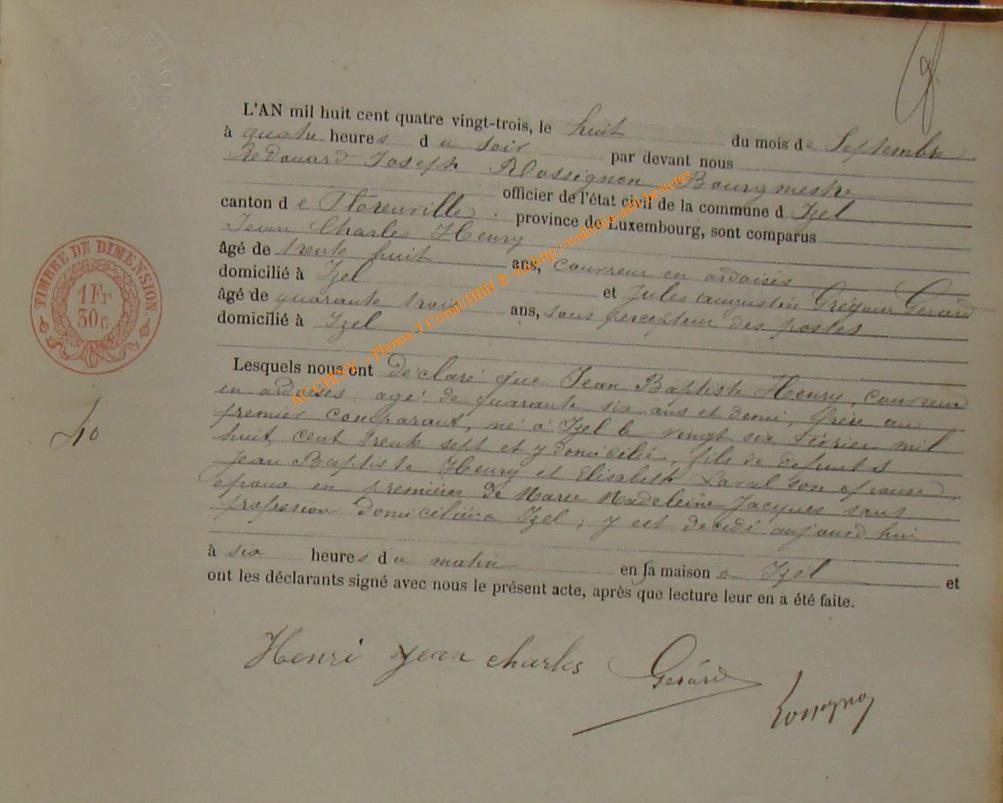 L'AN mil huit cent quatre vingt-trois, le huit du mois de Septembre
à quatre heures du soir par devant nous
Edouard Joseph Rossignon Bourgmestre
officier de l'état civil de la commune d Izel
canton de Florenville province de Luxembourg, sont comparus
Jean Charles Henry
âgé de trente huit ans, couvreur en ardoises
domicilié à Izel et Jules Augustin Grégoire Gerard
âgé de quarante trois ans, sous percepteur des postes
domicilié à Izel
TIMBRE DE DIMENSION
1 Fr
30 c
40
Lesquels nous ont déclaré que Jean Baptiste Henry, couvreur
en ardoises, agé de quarante six ans et demi, frère au
premier comparant, né à Izel le vingt six Février mil
huit cent trente sept et y domicilié, fils de defunts
Jean Baptiste Henry et Elisabeth Laval son epouse,
epoux en premières de Marie Madeleine Jacques sans
profession domiciliée à Izel, y est decédé aujourd'hui
à six heures du matin en sa maison à Izel et
ont les déclarants signé avec nous le présent acte, après que lecture leur en a été faite.
Henri Jean charles Gérard